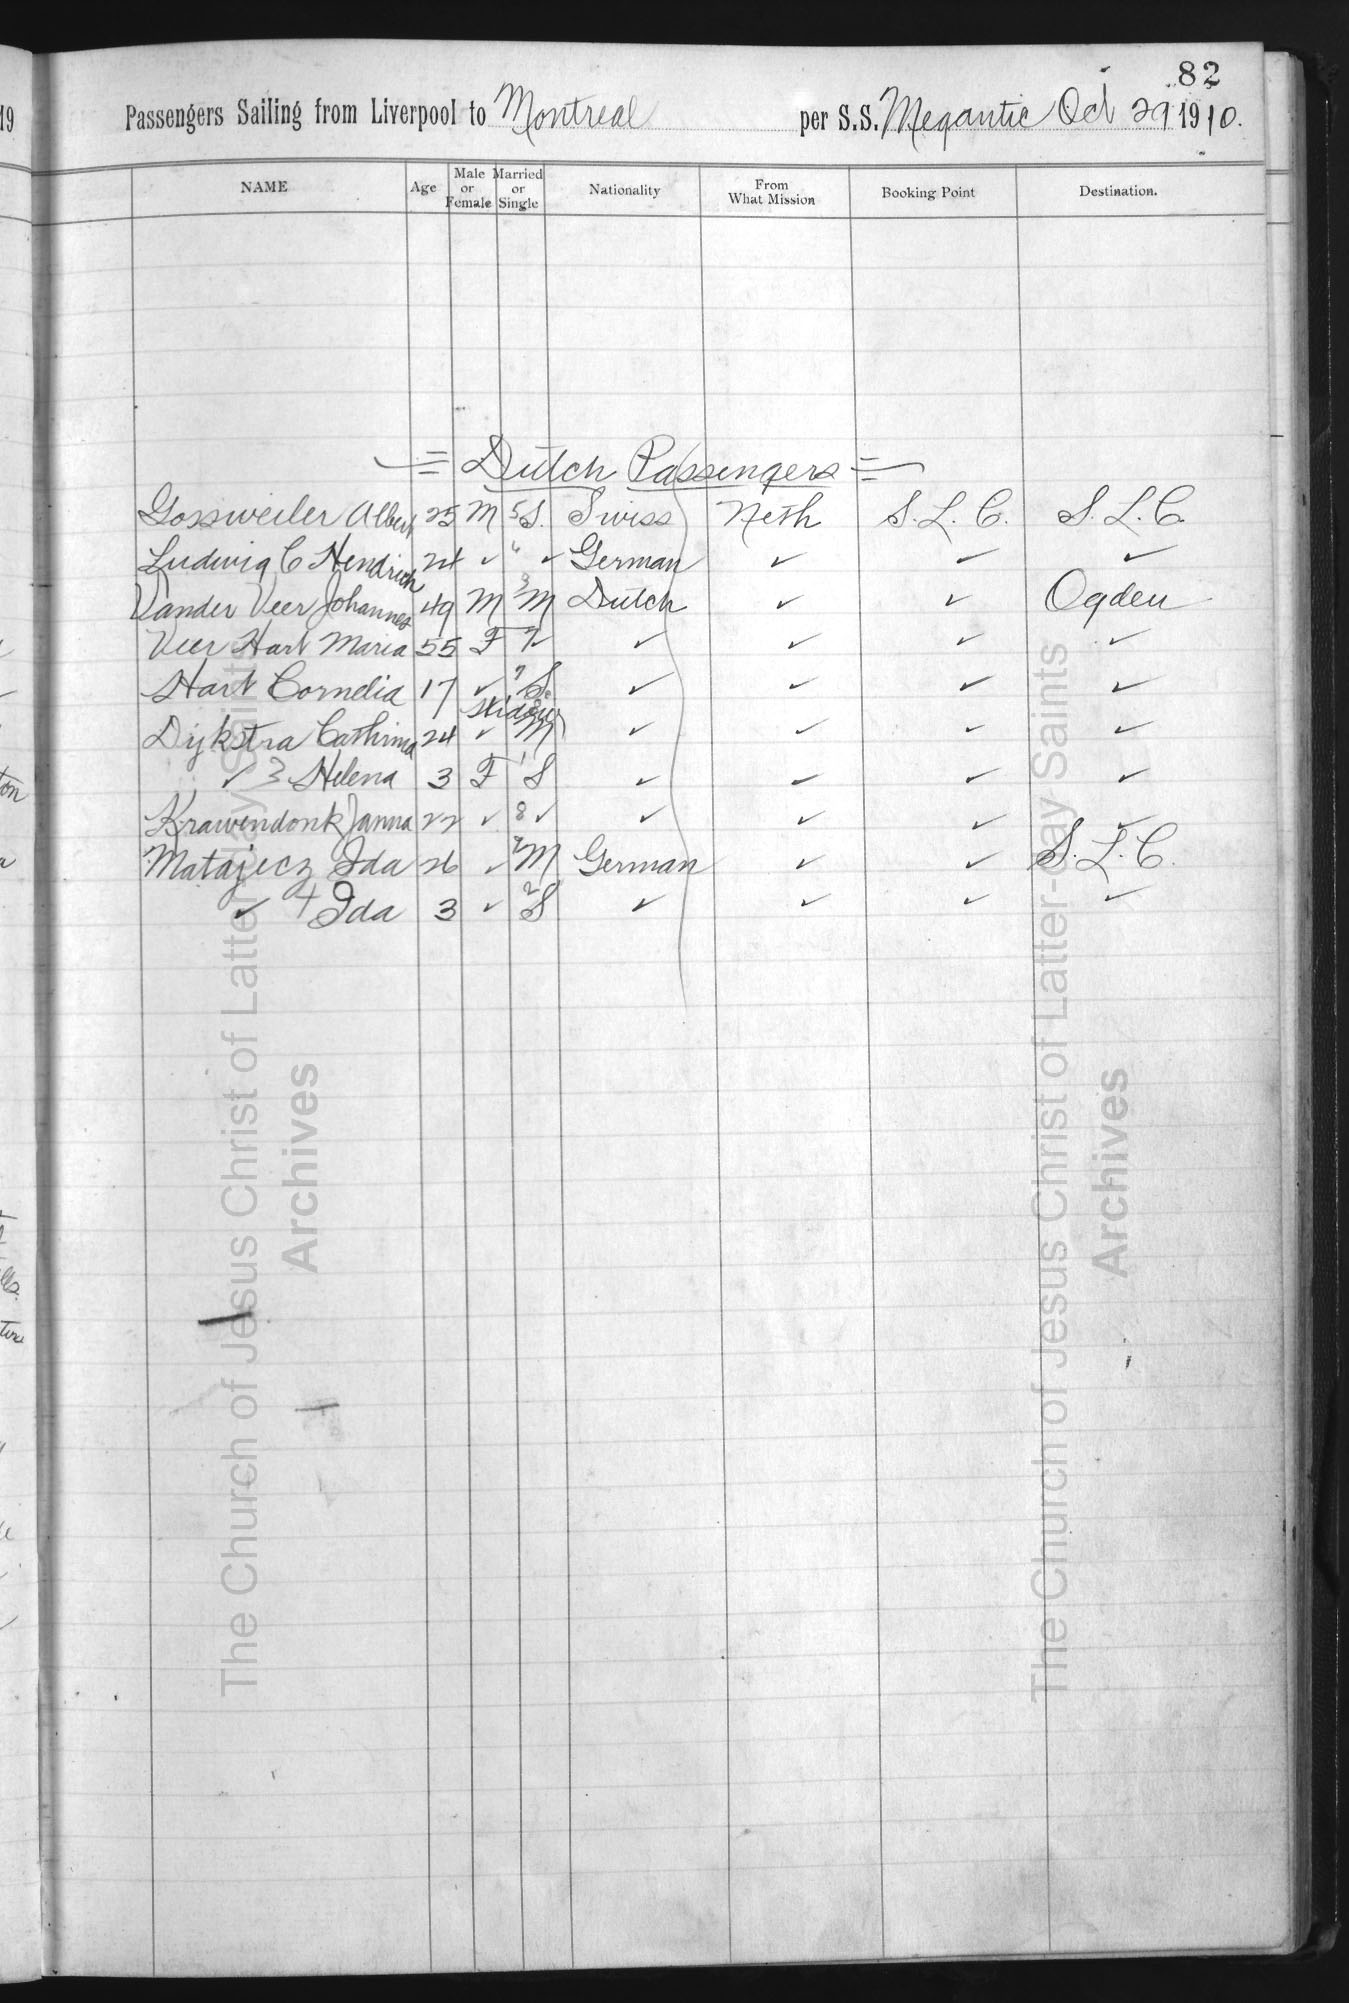 82
Passengers Sailing from Liverpool to Montreal per S.S. Megantic Oct 29 1910.
NAME Age Male or Female Married or Single Nationality From What Mission Booking Point Destination.
= Dutch Passengers =
Gossweiler Albert 25 M 5 S. Swiss Neth S. L. C. S. L. C.
Ludwig C Hendrich 24 ✓ 6 ✓ German ✓ ✓ ✓
Vander Veer Johannes 49 M 3 M Dutch ✓ ✓ Ogden
Veer Hart Maria 55 F ✓ ✓ ✓ ✓
Hart Cornelia 17 ✓ 7 S. ✓ ✓ ✓ ✓
Dijkstra Cathrina 24 ✓ M ✓ ✓ ✓ ✓
✓ 3 Helena 3 F 1 S ✓ ✓ ✓ ✓
Krawendonk Janna 22 ✓ 8 ✓ ✓ ✓ ✓ ✓
Matajecz Ida 26 ✓ 2 M German ✓ ✓ S. L. C.
✓ + Ida 3 ✓ 2 S ✓ ✓ ✓ ✓
The Church of Jesus Christ of Latter-day Saints
Archives
The Church of Jesus Christ of Latter-day Saints
Archives
19